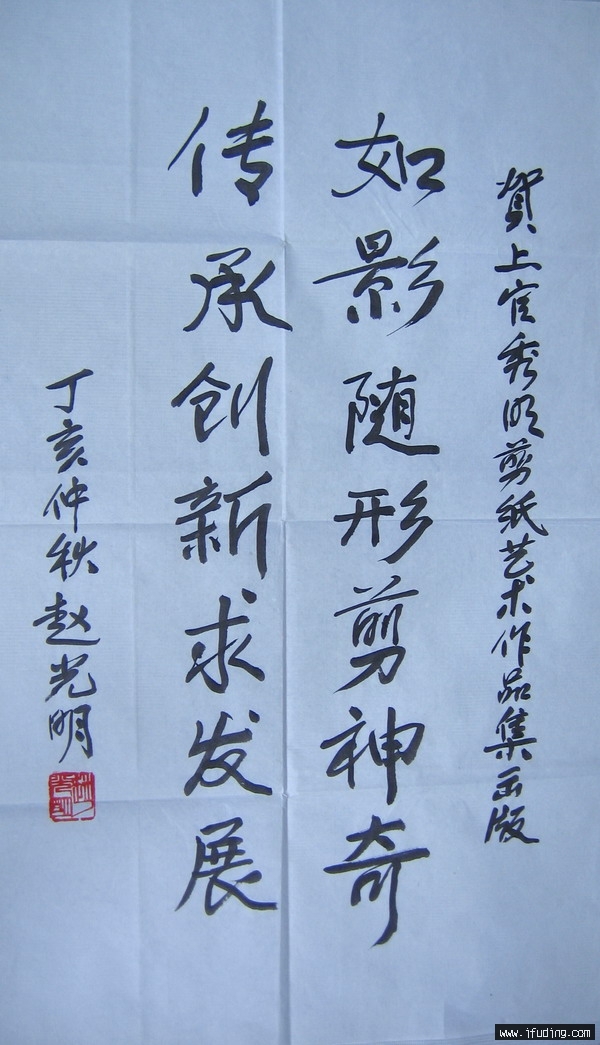 賀上官秀明剪纸艺术作品集出版
如影随形剪神奇
传承创新求发展
丁亥仲秋赵光明
www.ifuding.com